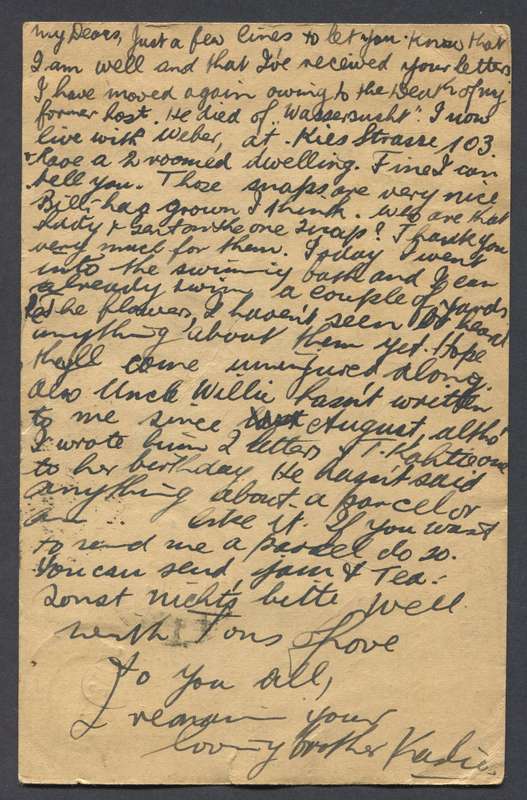 My Dears, Just a few lines to let you know that
I am well and that I've received your letters.
I have moved again owing to the Death of my
former host. He died of "Wassersusht". I now
live with Weber, at Kies Strasse 103
& have a 2 roomed dwelling. Fine I can
tell you. Those snaps are very nice
Bill has grown I think. Who are that
Lady & on the one snap? Thank you
very much for them. Today I went
into the swimming bath and I can
already swim a couple of yards
The flowers, I haven't seen or heard
anything about them yet. Hope
they'll come uninjured along.
Also Uncle Willie hasn't written
to me since August, altho'
I wrote him 2 letters T. Kähtie one
to her birthday. He hasn't said
anything about a parcel or
like it. If you want
to send me a parcel do so.
You can send, jam & Tea.
Sonst nichts bitte Well
with Tons of love
to you all,
I remain your
loving brother